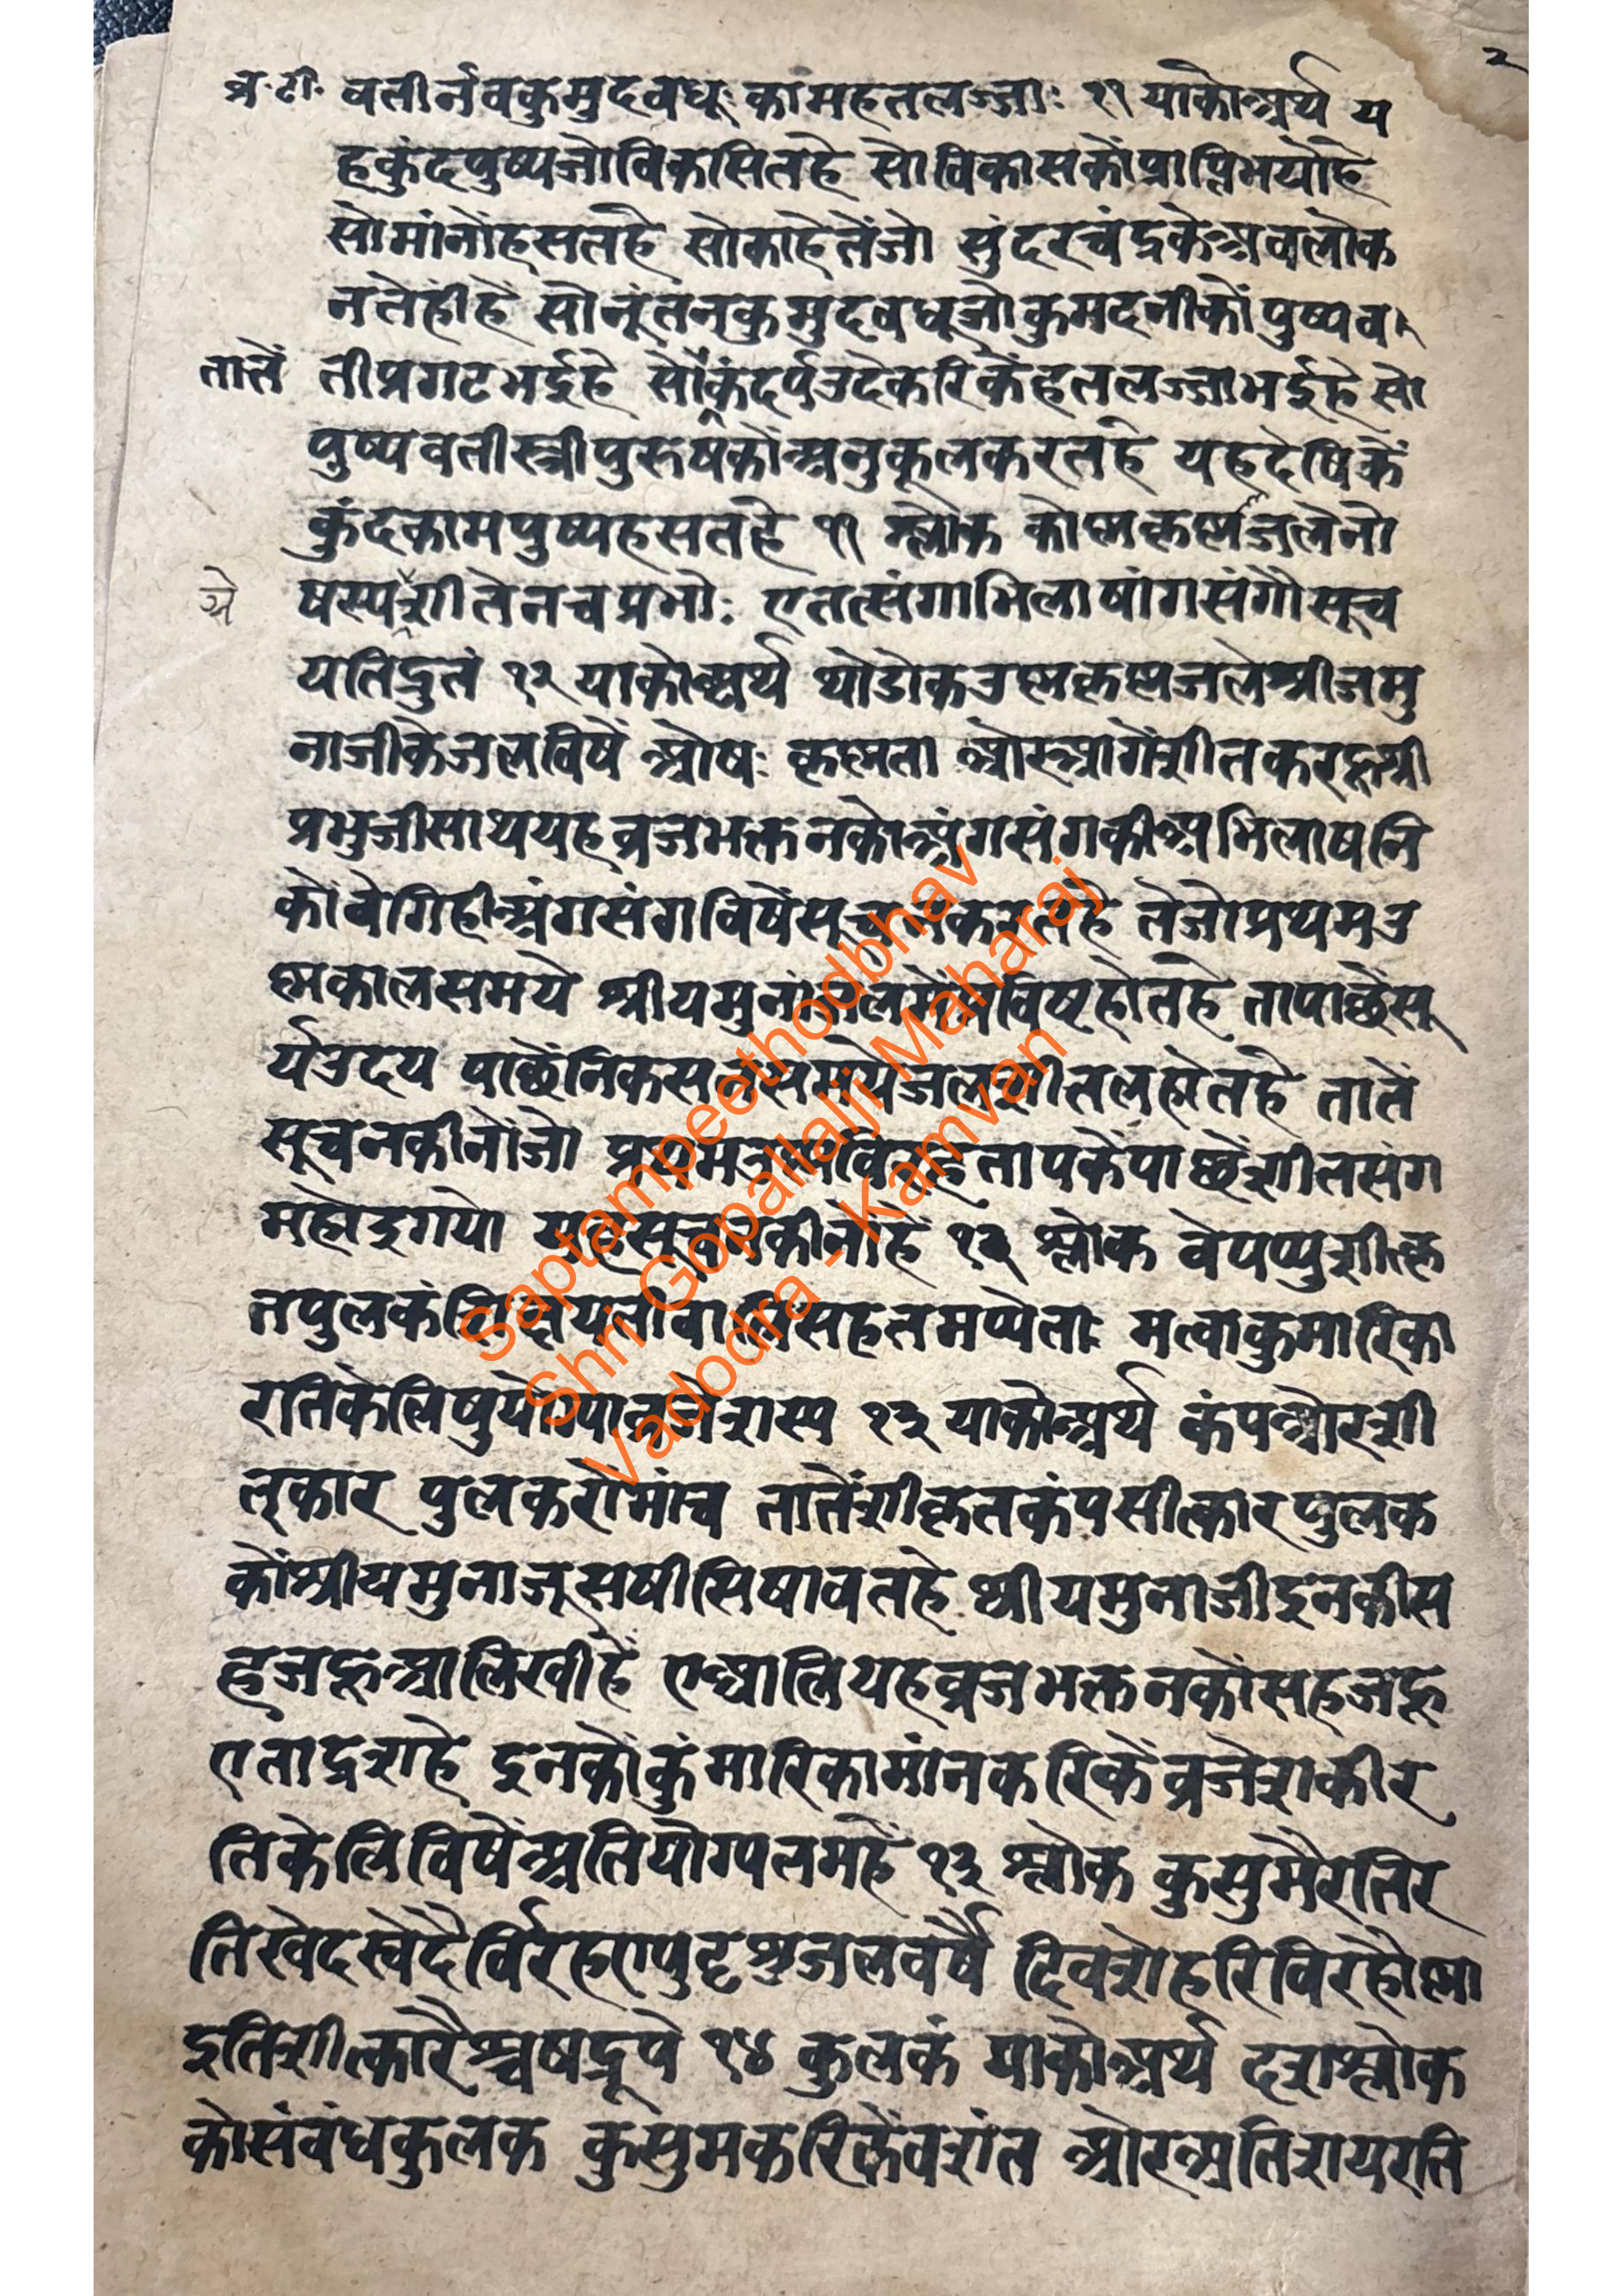 २
व्र॰टी॰ वतीर्नवकुमुदवधूः कामहतलज्जाः ११ याकोअर्थ य
हकुंदपुष्पजोविकासितहे सोविकासकोंप्राप्तिभयोहे
सोमांनोंहसतहे सोकाहेतेंजो सुंदरचंद्रकेअवलोक
नतेहींहें सोनूंतंनकुमुदवधूजोकुमदनीकों पुष्पव
तातें तीप्रगटभईहे सोकंदर्पउदेकरिकेंहतलज्जाभईहे सो
पुष्पवतीस्त्रीपुरुषकोंअनुकूलकरतहे यहदेषिकें
कुंदकामपुष्पहसतहे ११ श्लोक कोष्णकृष्णजलेनो
त्रे षस्पर्शीतेनचप्रभोः एतत्संगाभिलाषांगसंगौसूच
यतिद्रुतं १२ याकोअर्थ थोडोकउष्णकृष्णजलेश्रीजमु
नाजीकेजलविषें ओषः कृष्णता ओरुआगेंशीतकरहूश्री
प्रभुजीसाथयहव्रजभक्तनकोअंगसंगकीअभिलाषनि
कोंवेगिहीअंगसंगविषेंसूचनकरतहे तेजोप्रथमउ
ष्णकालसमये श्रीयमुनांजलमेंप्रविष्टहोतहे तापाछेंसू
र्यउदय पाछेंनिकसतसमयेजलशीतलहोतहे तातें
सूचनकीनोंजो प्रथमउष्णविरहतापकेंपाछेंशीतसंग
महोइगयो यहसूचनकीनोंहें १२ श्लोक वेपप्पुशीत्कृ
तपुलकंशिक्षयतीवालिसहतमप्पेताः मत्वाकुमारिका
रतिकेलिषुयोग्पाव्रजेशस्प १३ याकोअर्थ कंपओरशी
त्कार पुलकरोमांच तातेंशीकृतकंपसीत्कारपुलक
कोंश्रीयमुनाजूसषीसिषावतहे श्रीयमुनाजीइनकीस
हजहूआलिखीहें एआलियहव्रजभक्तनकोंसहजहू
एताद्रशहे इनकोंकुंमारिकामांनकरिकेंव्रजेशकीर
तिकेलिविषेंअतियोग्पतमहें १३ श्लोक कुसुमैरतिर
तिखेदस्वेदैर्विरहएषुदृश्रुजलवर्षै दिवशेहरिविरहोष्मा
इतिशीत्कारैश्चषद्रूपे १४ कुलकं याकोअर्थ दशश्लोक
कोसंबंधकुलक कुसुमकरिकेंवशंत ओरअतिशयरति
Saptampeethodbhav
Shri Gopallalji Maharaj
Vadodra - Kamvan